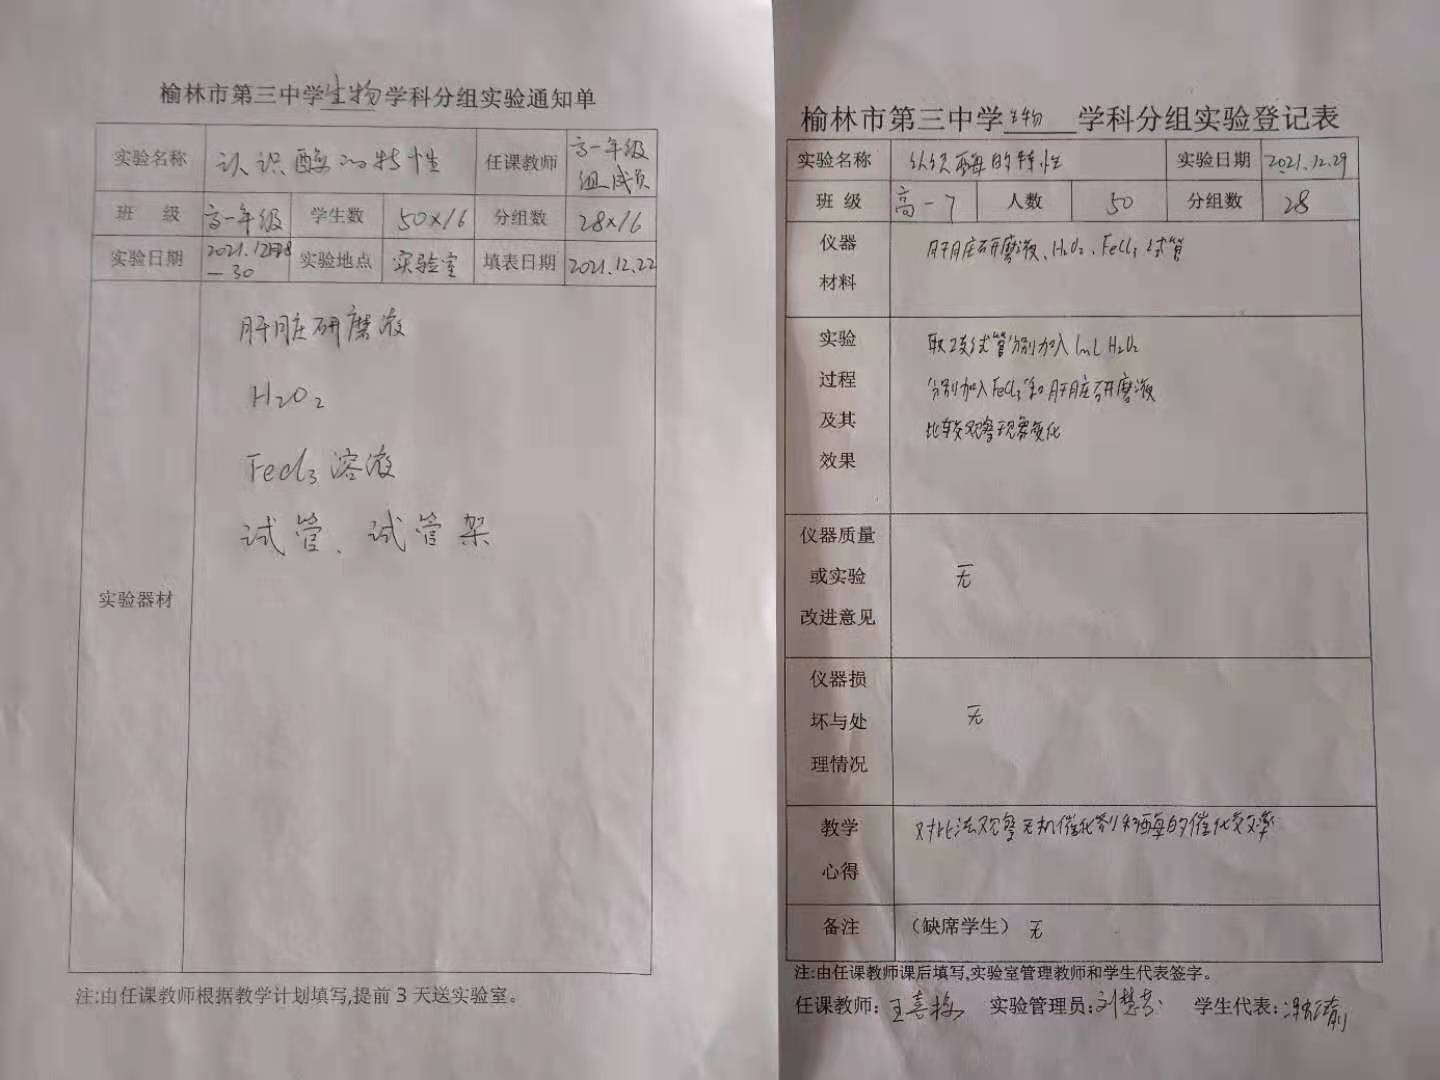 榆林市第三中学生物学科分组实验通知单
实验名称 认识酶的特性 任课教师 高一年级组成员
班 级 高一年级 学生数 50×16 分组数 28×16
实验日期 2021.12月28—30 实验地点 实验室 填表日期 2021.12.22
实验器材
肝脏研磨液
H₂O₂
FeCl₃溶液
试管、试管架
注:由任课教师根据教学计划填写,提前3天送实验室。
榆林市第三中学生物学科分组实验登记表
实验名称 认识酶的特性 实验日期 2021.12.29
班 级 高一7 人数 50 分组数 28
仪器
材料
肝脏研磨液、H₂O₂、FeCl₃ 试管
实验
过程
及其
效果
取2支试管分别加入1mL H₂O₂
分别加入FeCl₃和肝脏研磨液
比较观察现象变化
仪器质量
或实验
改进意见
无
仪器损
坏与处
理情况
无
教学
心得
对比法观察无机催化剂和酶的催化效率
备注 (缺席学生) 无
注:由任课教师课后填写,实验室管理教师和学生代表签字。
任课教师: 王喜梅 实验管理员: 刘慧芳 学生代表: